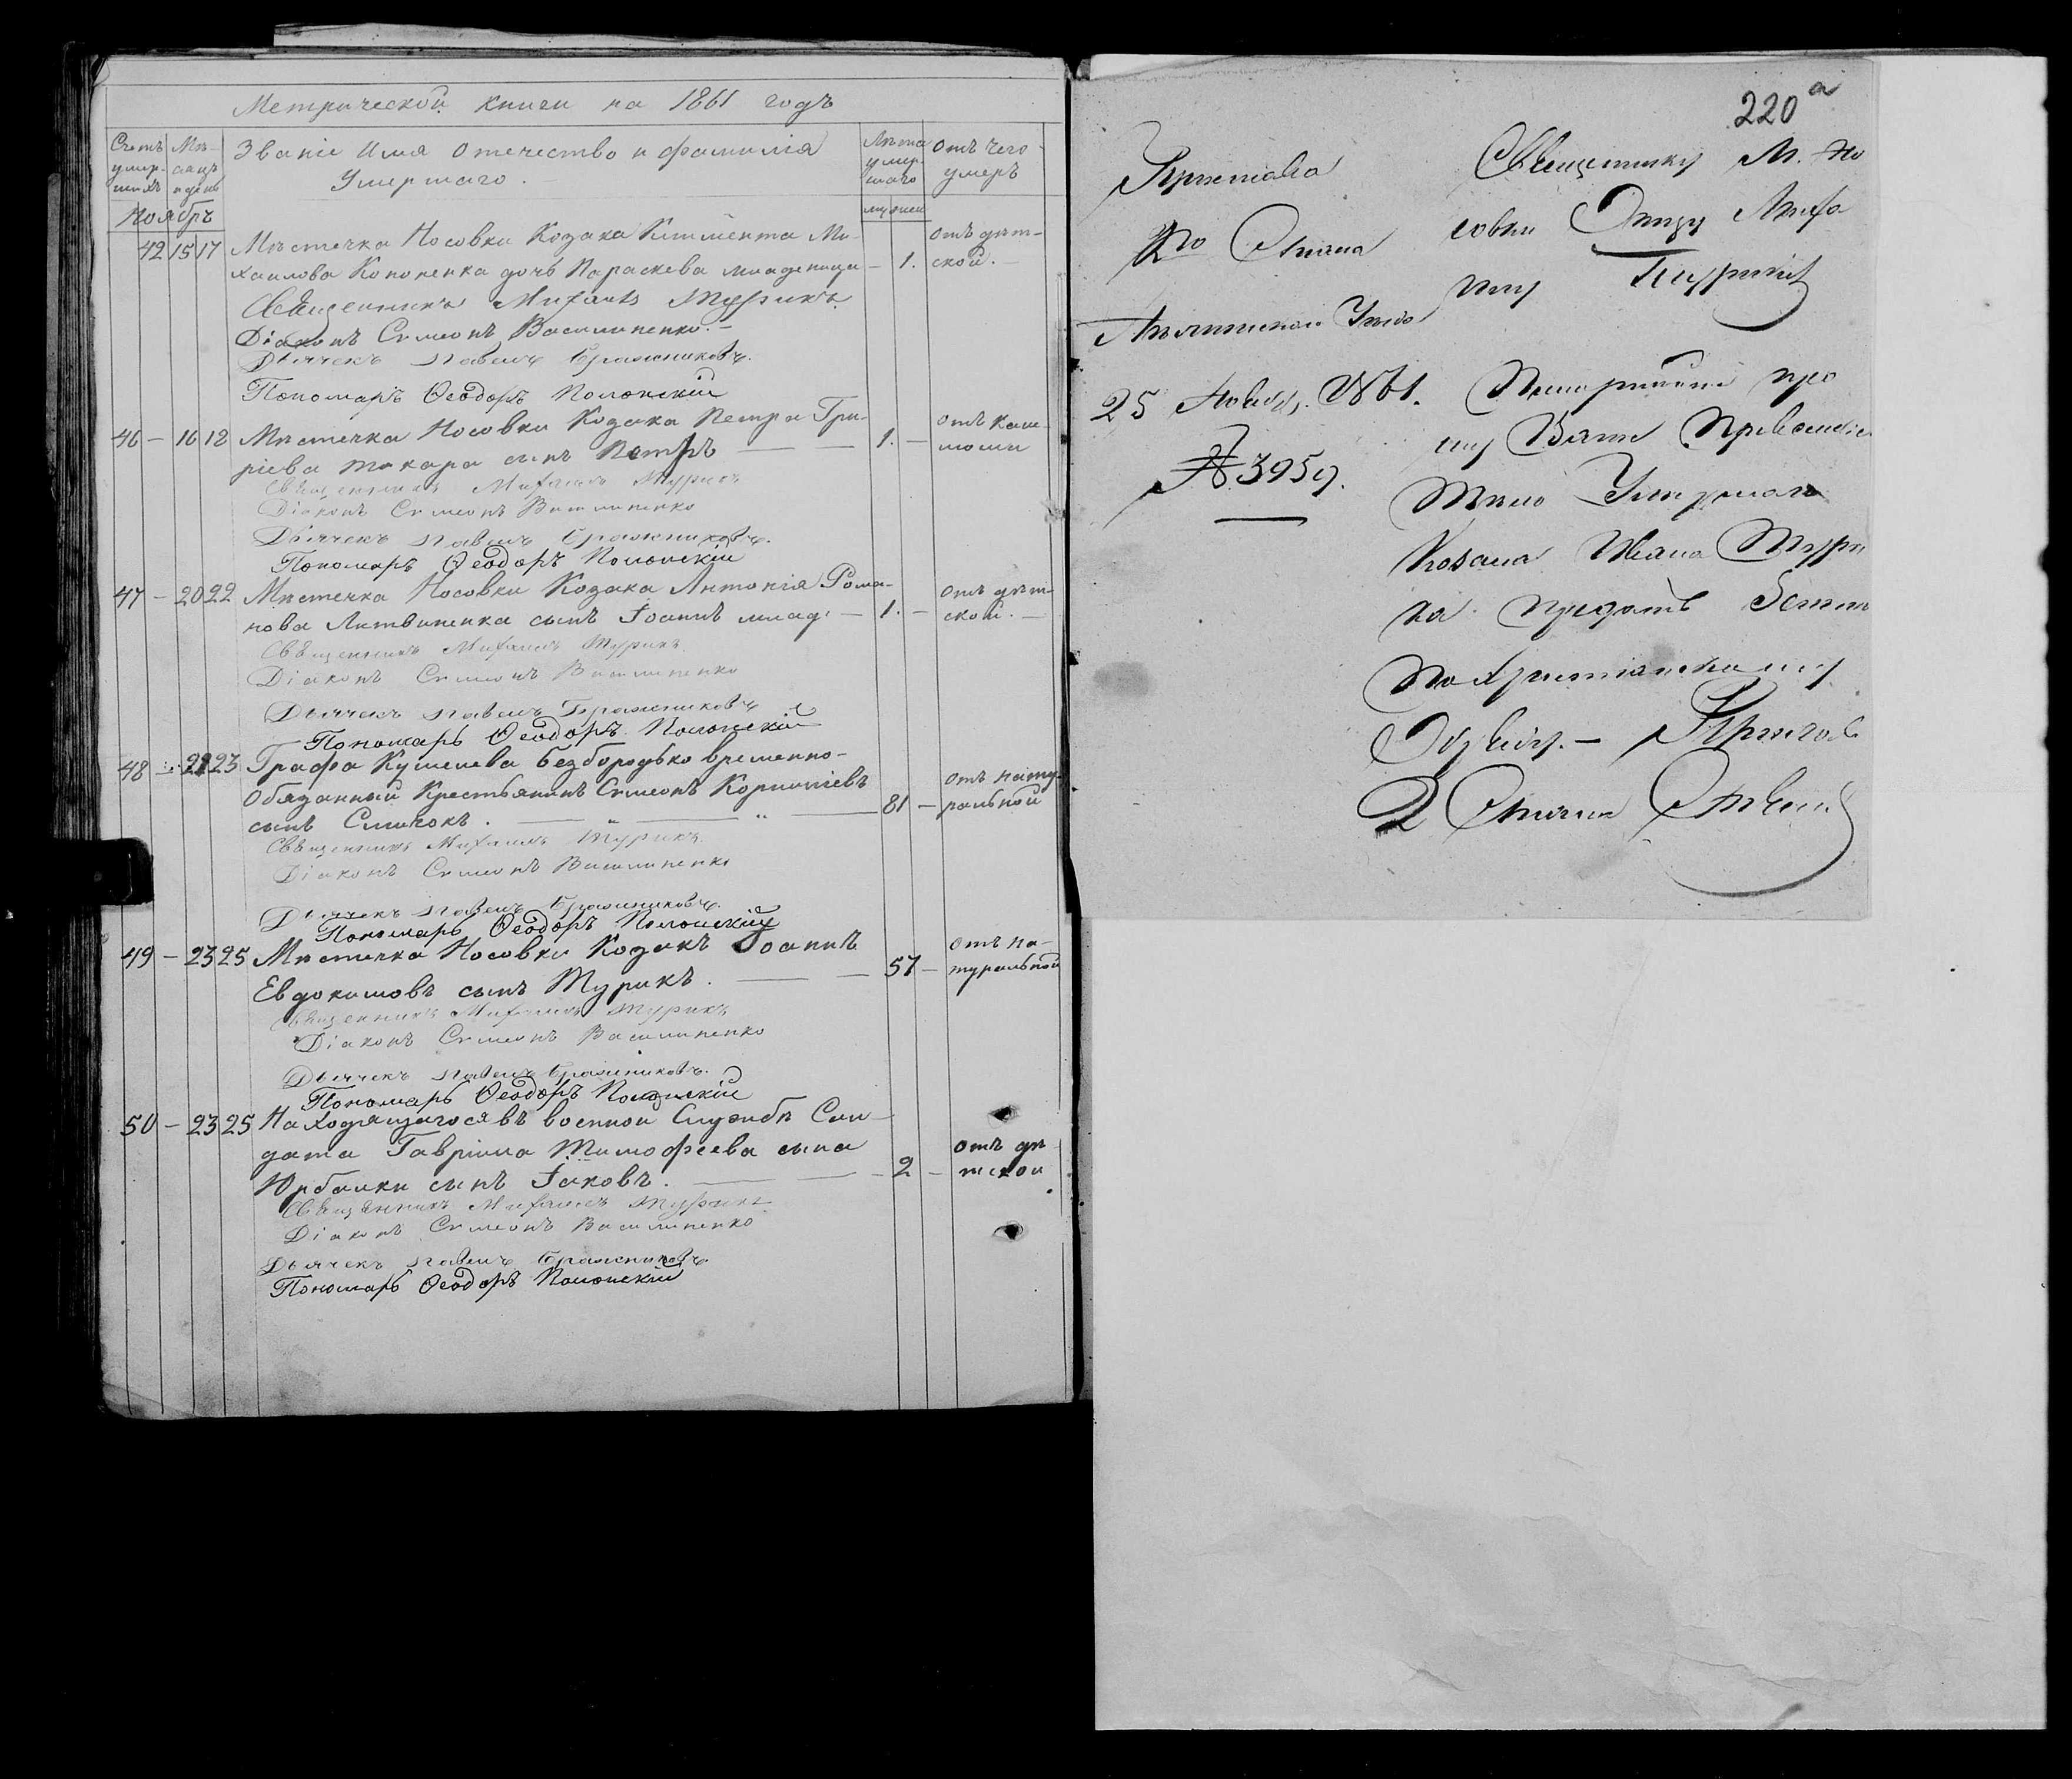 Метрической книги на 1861 годъ
Счетъ умершихъ
Мѣсяцъ и день
Званіе Имя Отечество и фамилія
Умершаго.
Лѣта умершаго
Отъ чего умеръ
Ноябрь
муж жен
42 15 17 Мѣстечка Носовки Козака Климента Ми-
хаилова Кононенка дочь Параскева младеница — 1. отъ дѣтской. —
Священникъ Михаилъ Турикъ
Діаконъ Симеонъ Василиненко. —
Дьячекъ Павелъ Бражниковъ.
Пономарь Ѳеодоръ Полонскій
46 — 16 18 Мѣстечка Носовки Козака Петра Гри-
ріева Токара сынъ Петръ — 1. — отъ кашлюши
Священникъ Михаилъ Турикъ
Діаконъ Симеонъ Василиненко
Дьячекъ Павелъ Бражниковъ.
Пономарь Ѳеодоръ Полонскій
47 — 20 22 Мѣстечка Носовки Козака Антонія Рома-
нова Литвиненка сынъ Іоаннъ млад. — 1. — отъ дѣтской. —
Священникъ Михаилъ Турикъ
Діаконъ Симеонъ Василиненко
Дьячекъ Павелъ Бражниковъ
Пономарь Ѳеодоръ Полонскій
48 — 23 Графа Кушелева Безбородько временно-
Обязанный Крестьянинъ Симеонъ Корниліевъ
сынъ . — „ — „ — 81 — отъ натуральной
Священникъ Михаилъ Турикъ
Діаконъ Симеонъ Василиненко
Дьячекъ Павелъ Бражниковъ.
Пономарь Ѳеодоръ Полонскій
49 — 23 25 Мѣстечка Носовки Козакъ Іоаннъ
Евдокимовъ сынъ Турикъ. — 57 — отъ натуральной
Священникъ Михаилъ Турикъ
Діаконъ Симеонъ Василиненко
Дьячекъ Павелъ Бражниковъ.
Пономарь Ѳеодоръ Полонскій
50 — 23 25 Находящагося въ военной Службѣ Сол-
дата Гавріила Тимофеева сына
Юрбалки сынъ Іаковъ. — 2 — отъ дѣтской
Священникъ Михаилъ Турикъ
Діаконъ Симеонъ Василиненко
Дьячекъ Павелъ Бражниковъ.
Пономарь Ѳеодоръ Полонскій
220 а
Пристава
2го Стана
Нѣжинскаго Уѣзда
25 Ноября 1861.
№ 3959.
Священнику М. Но
совки Отцу Миха
илу Турику
про
шу Ваше
Тѣло Умершаго
Козака Ивана Тури
ка предать Земли
По Христіанскому
Обряду. — Приставъ
2 Стана